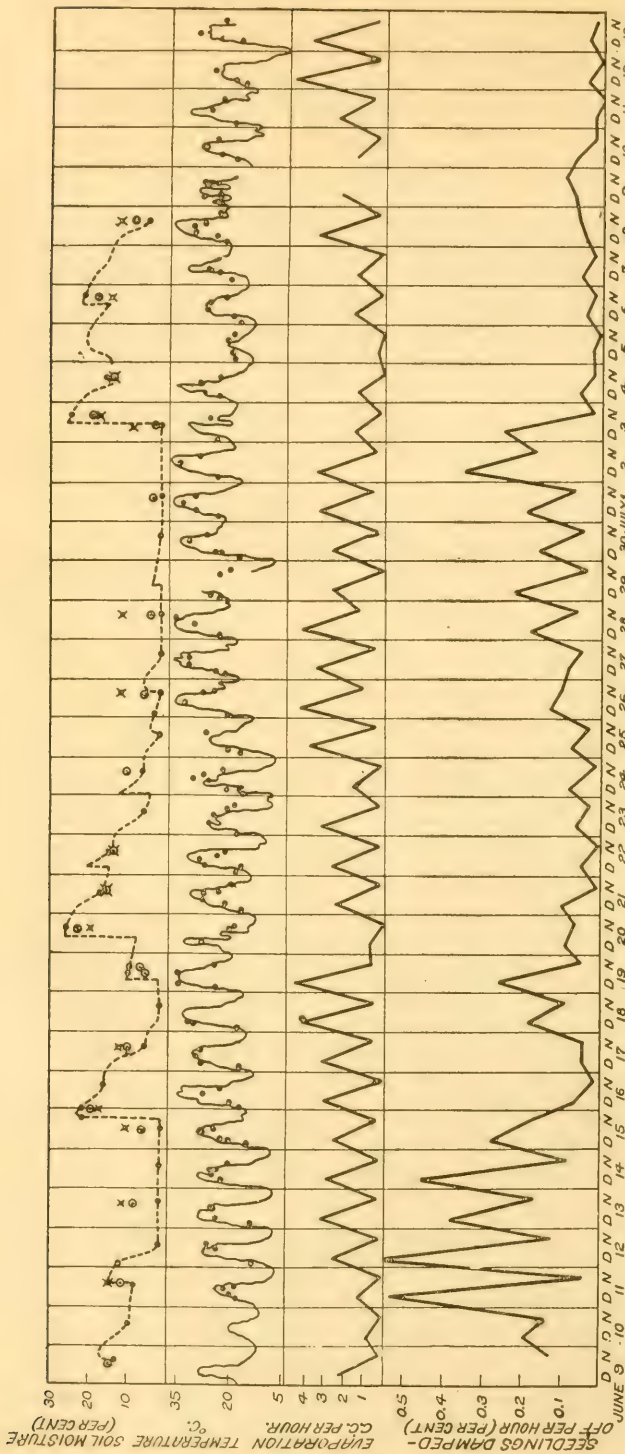 SOIL MOISTURE
(PER CENT)
30
20
10
TEMPERATURE
°C.
35
20
5
EVAPORATION
C.C. PER HOUR.
4
3
2
1
SEEDLINGS DAMPED-
OFF PER HOUR (PER CENT)
0.5
0.3
0.1
D N D N D N D N D N D N D N D N D N D N D N D N D N D N D N D N D N D N D N D N D N D N D N D N D N D N D N D N D N D N D N D N D N D N D N
JUNE 9 10 11 12 13 14 15 16 17 18 19 20 21 22 23 24 25 26 27 28 29 30 JULY 1 2 3 4 5 6 7 8